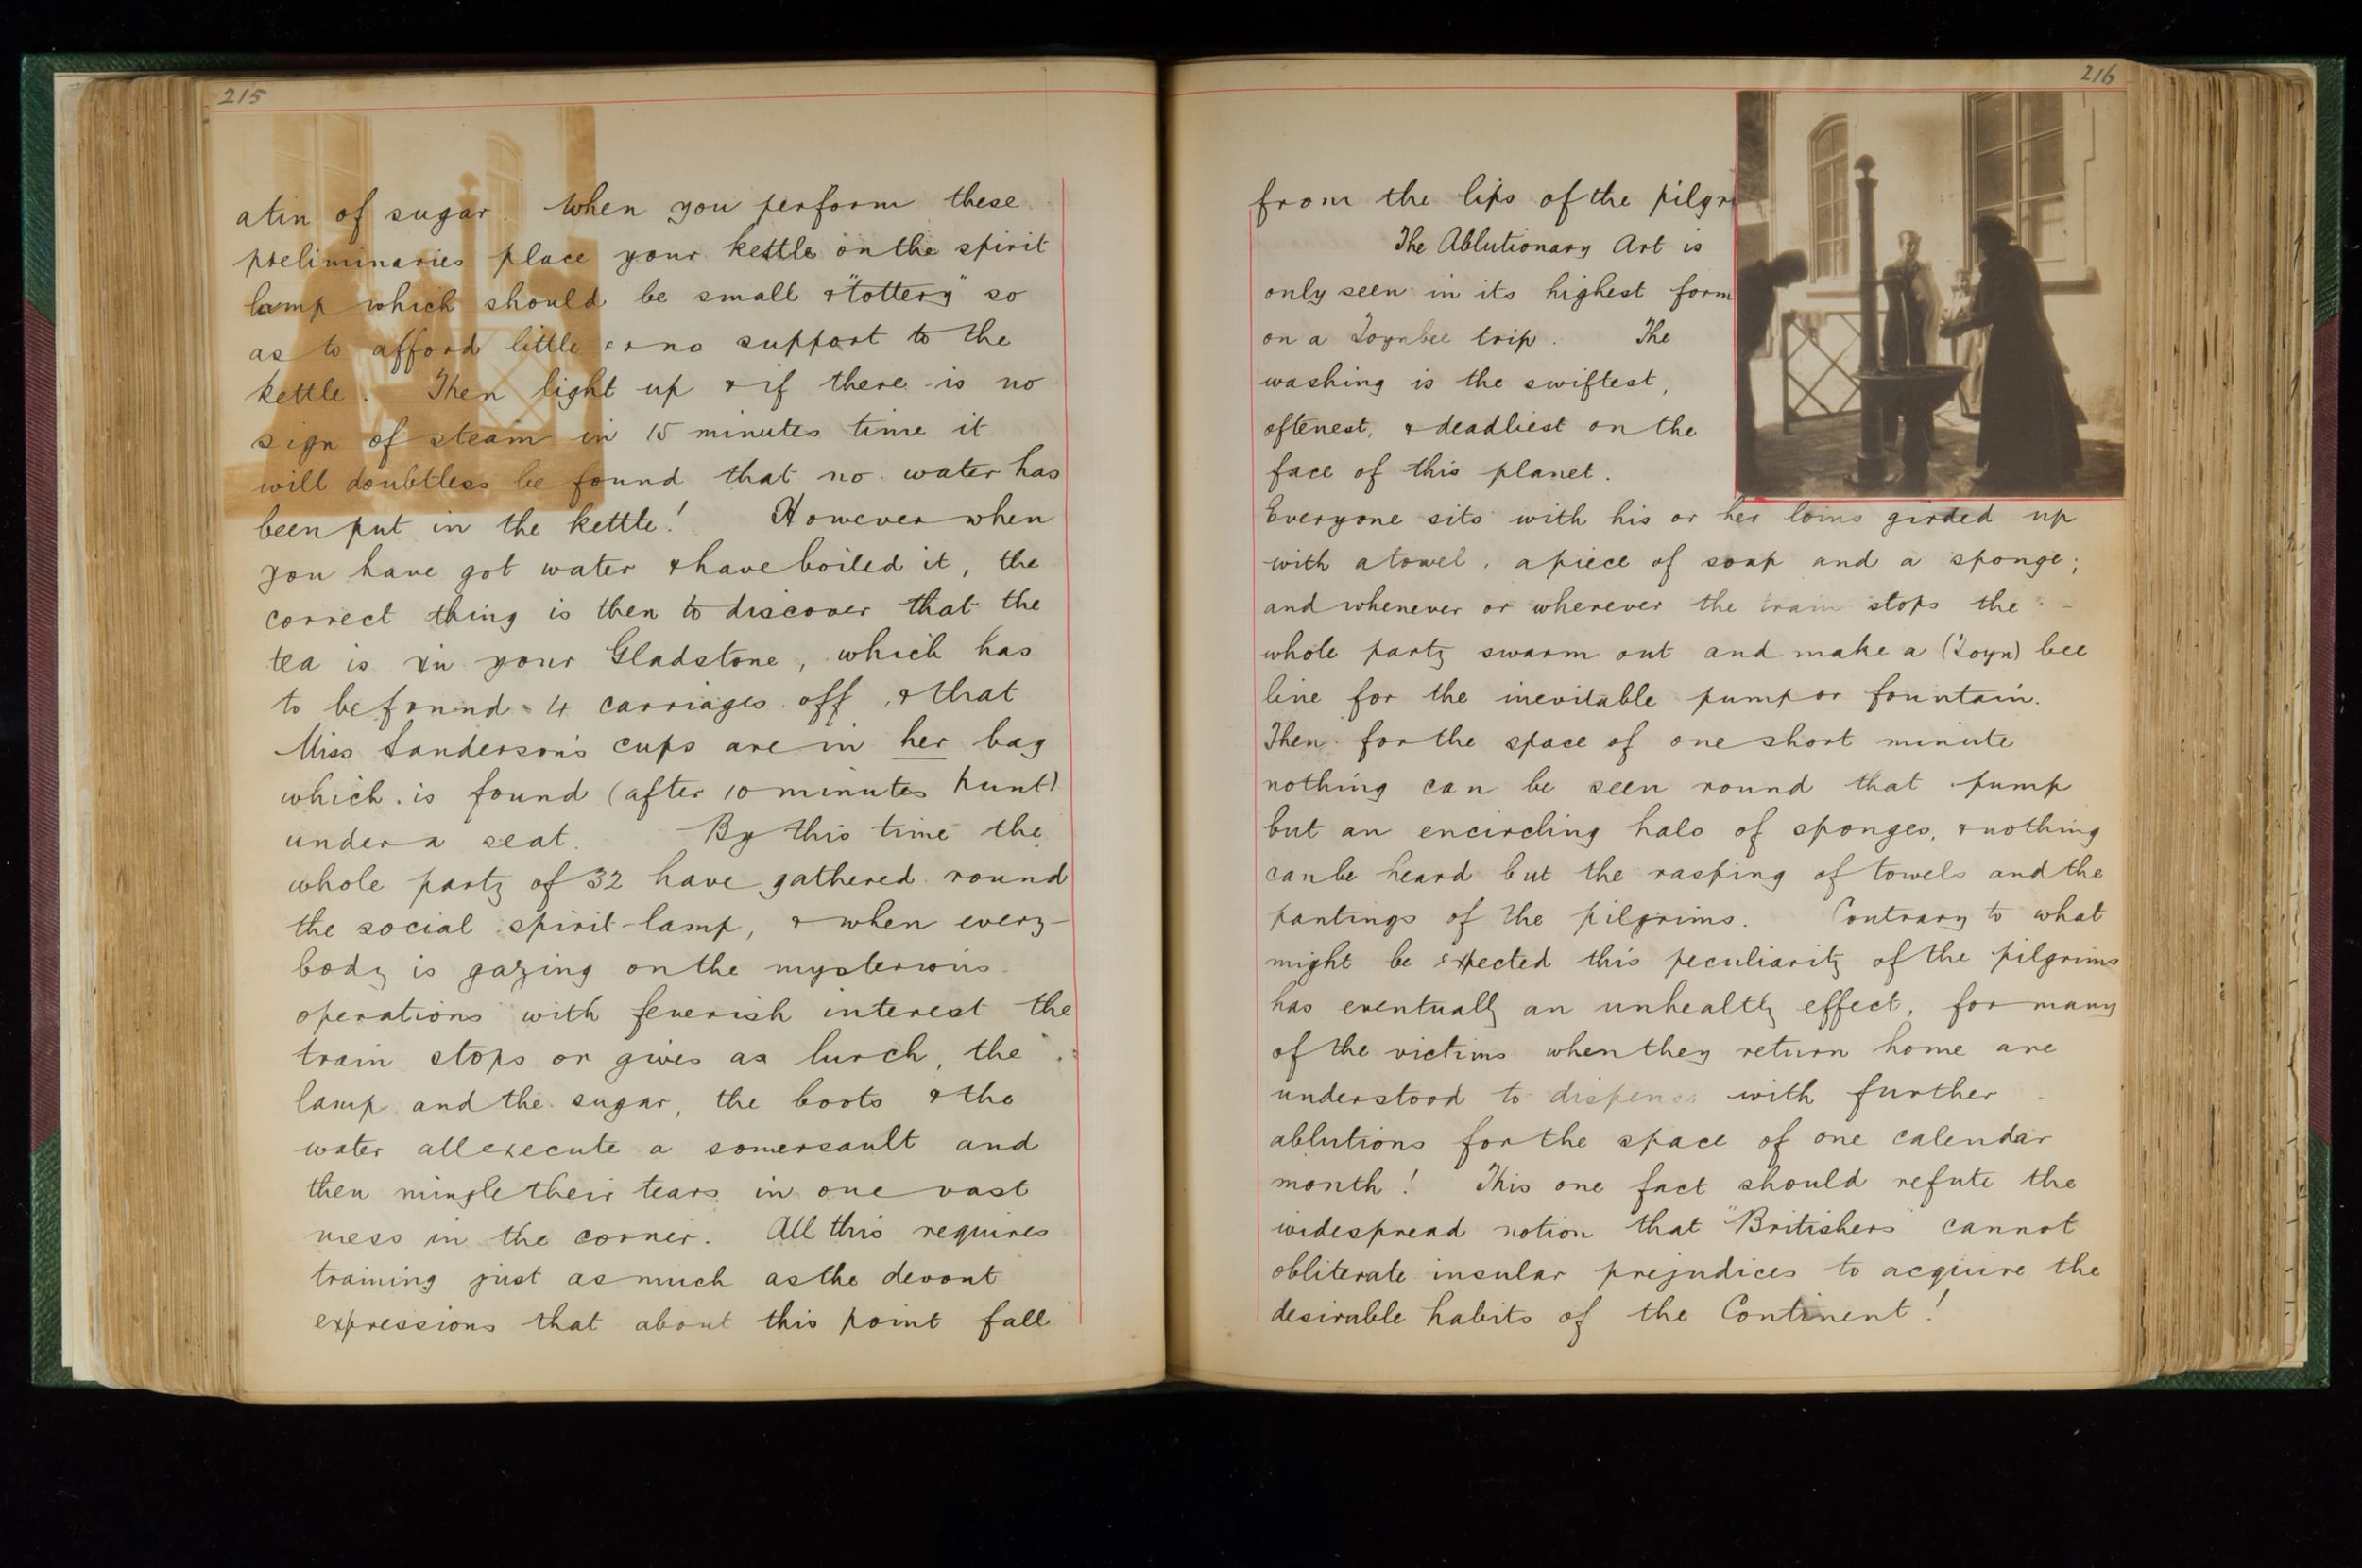 215
atin of sugar. When you perform these
preliminaries place your kettle on the spirit
lamp which should be small & "tottery" so
as to afford little or no support to the
kettle. Then light up & if there is no
sign of steam in 15 minutes time it
will doubtless be found that no water has
been put in the kettle! However when
you have got water & have boiled it, the
correct thing is then to discover that the
tea is in your Gladstone, which has
to be found 4 carriages off, & that
Miss Sanderson's cups are in her bag
which is found (after 10 minutes hunt)
under a seat. By this time the
whole party of 32 have gathered round
the social spirit-lamp, & when every-
body is gazing on the mysterious
operations with feverish interest the
train stops or gives a lurch, the
lamp and the sugar, the boots & the
water all execute a somersault and
then mingle their tears in one vast
mess in the corner. All this requires
training just as much as the devout
expressions that about this point fall
216
from the lips of the pilgri
The Ablutionary Art is
only seen in its highest form
on a Toynbee trip. The
washing is the swiftest,
oftenest, & deadliest on the
face of this planet.
Everyone sits with his or her loins girded up
with a towel, a piece of soap and a sponge;
and whenever or wherever the train stops the
whole party swarm out and make a (Toyn) bee
line for the inevitable pump or fountain.
Then for the space of one short minute
nothing can be seen round that pump
but an encircling halo of sponges, & nothing
can be heard but the rasping of towels and the
pantings of the pilgrims. Contrary to what
might be expected this peculiarity of the pilgrims
has eventually an unhealthy effect, for many
of the victims when they return home are
understood to dispense with further
ablutions for the space of one calendar
month! This one fact should refute the
widespread notion that "Britishers" cannot
obliterate insular prejudices to acquire the
desirable habits of the Continent!